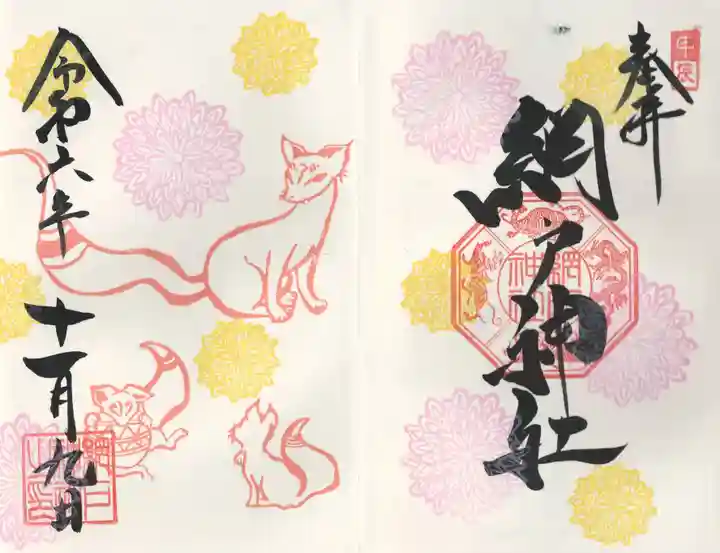 甲辰
奉拝
網戸神社
網戸神社
令和六年
十一月九日